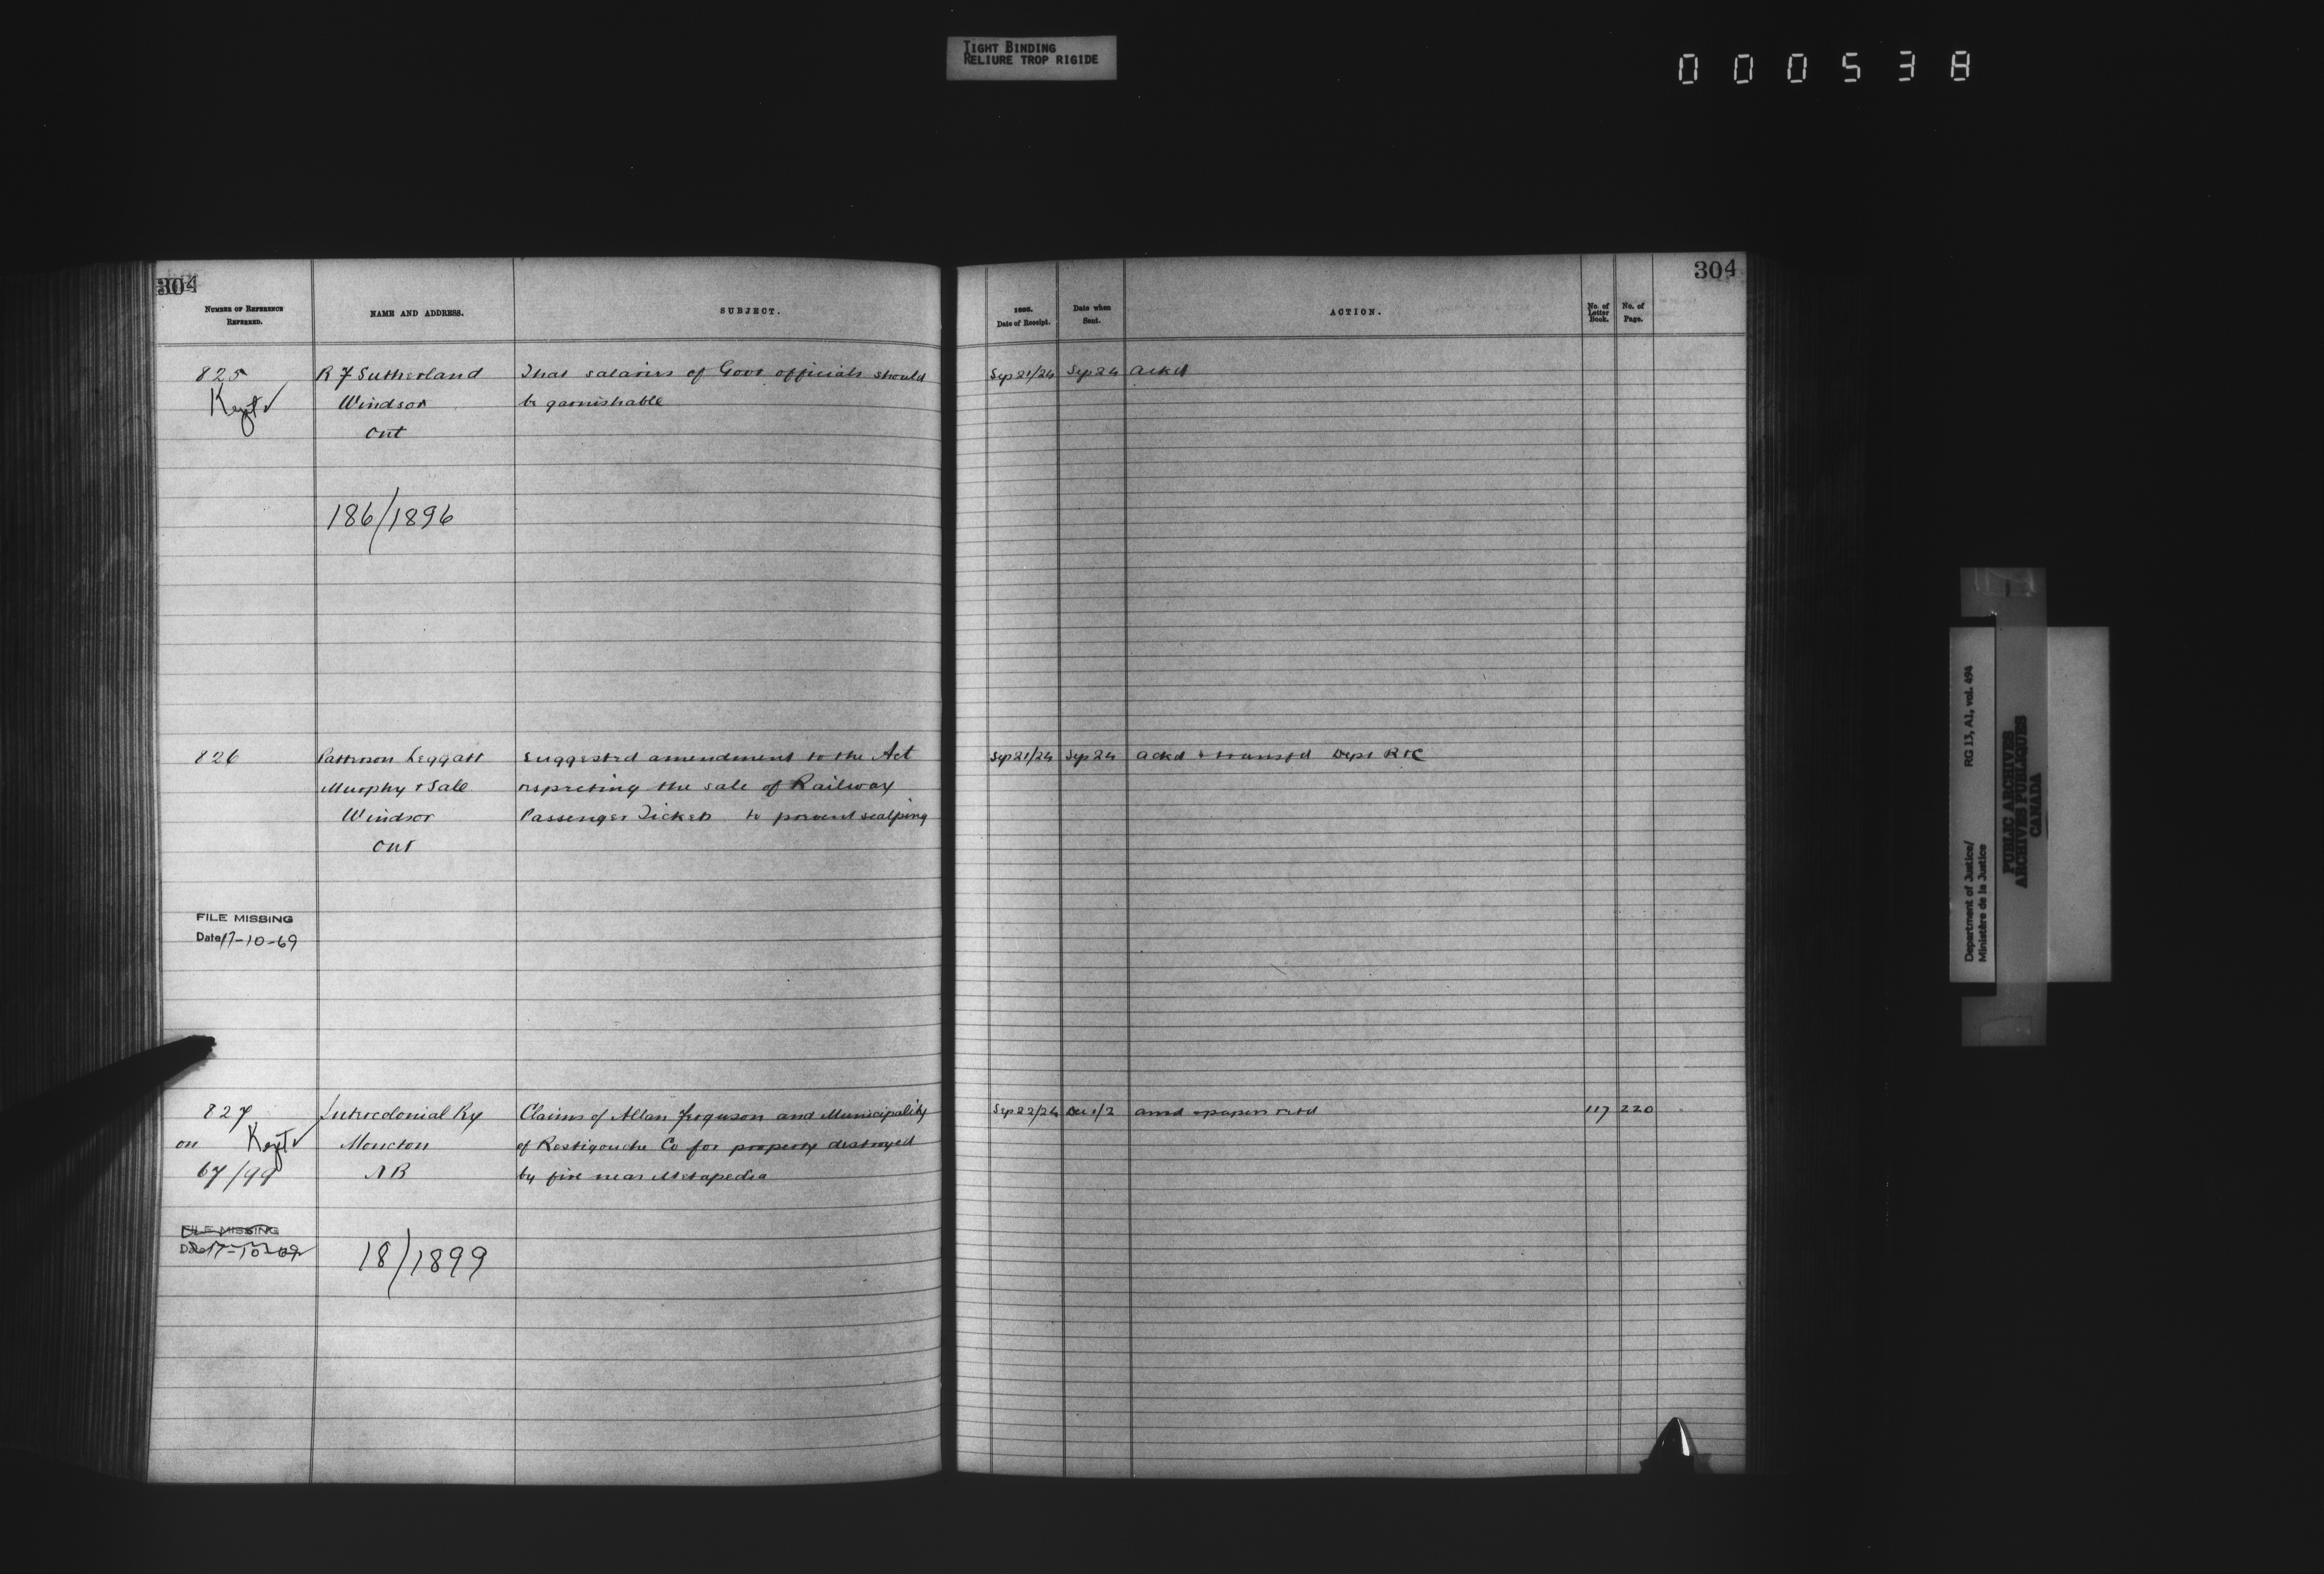 TIGHT BINDING
RELIURE TROP RIGIDE
000538
304
304
NUMBER OF REFERENCE
REFERRED.
NAME AND ADDRESS.
SUBJECT.
Date of Receipt.
Date when
Sent.
ACTION.
No. of
Letter
Book.
No. of
Page.
825
R F Sutherland
That salaries of Govt officials should
Sep 21/24
Sep 24
ackd
Kept
Windsor
be garnishable
Ont
186/1896
826
Patterson Leggatt
Suggested amendment to the Act
Sep 21/24
Sep 24
ackd + transfd Dept R+C
Murphy + Sale
respecting the sale of Railway
Windsor
Passenger Tickets to prevent scalping
Ont
FILE MISSING
Date 17-10-69
827
Intercolonial Ry
Claims of Allan Ferguson and Municipality
Sep 22/24
Dec 1/2
ansd + papers retd
117
220
on
Kept
Moncton
of Restigouche Co for property destroyed
67/99
NB
by fire near Metapedia
FILE MISSING
Date 17-10-69
18/1899
RG 13, A1, vol. 494
Department of Justice/
Ministère de la Justice
PUBLIC ARCHIVES
ARCHIVES PUBLIQUES
CANADA